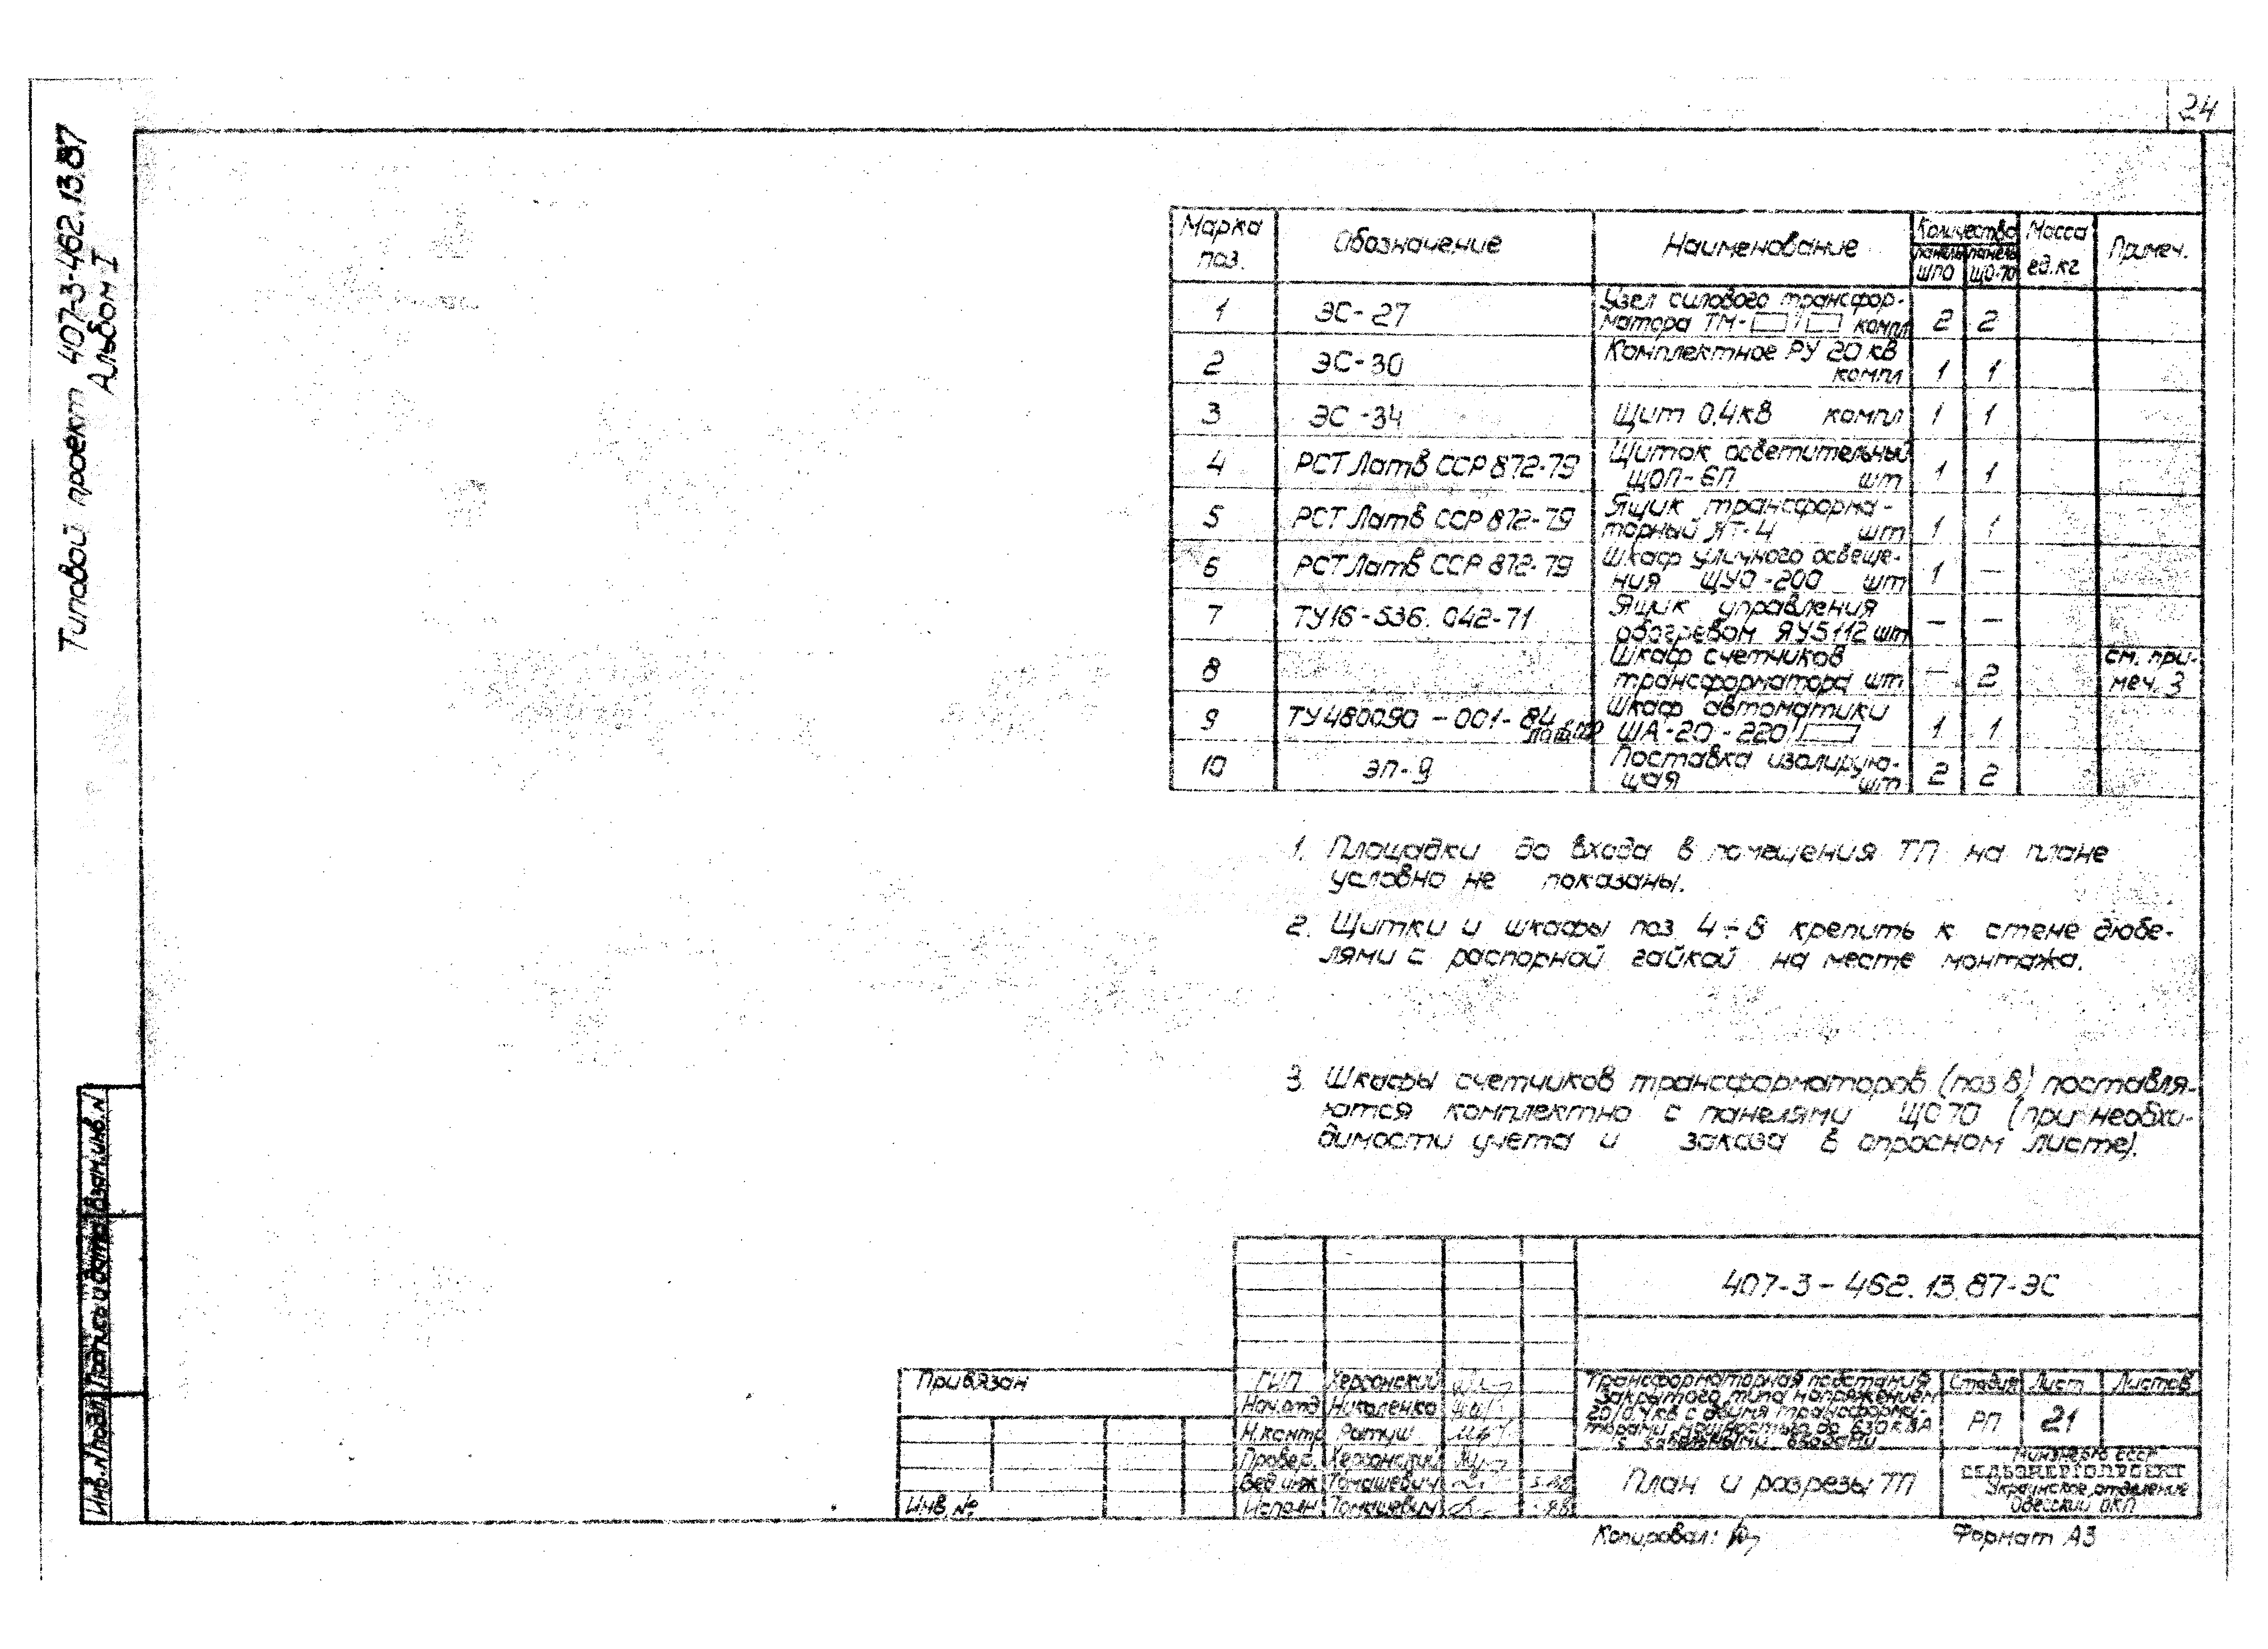 24
Типовой проект 407-3-462.13.87
Альбом I
Марка поз. Обозначение Наименование Количество Масса ед.кг Примеч.
панель ЩПО панель ЩО-70
1 ЭС-27 Узел силового трансфор-
матора ТМ-□/□ компл 2 2
2 ЭС-30 Комплектное РУ 20 кВ
компл 1 1
3 ЭС-34 Щит 0,4кВ компл 1 1
4 РСТ Латв ССР 872-79 Щиток осветительный
ЩОП-6П шт 1 1
5 РСТ Латв ССР 872-79 Ящик трансформа-
торный ЯТ-4 шт 1 1
6 РСТ Латв ССР 872-79 Шкаф уличного освеще-
ния ЩУО-200 шт 1 —
7 ТУ16-536.042-71 Ящик управления
обогревом ЯУ5112 шт — —
8 Шкаф счетчиков см. при-
трансформатора шт — 2 меч. 3
9 ТУ480090-001-84 Шкаф автоматики
ША-20-220/□ 1 1
10 ЭП-9 Поставка изолирую-
щая шт 2 2
1. Площадки до входа в помещения ТП на плане
условно не показаны.
2. Щитки и шкафы поз. 4÷8 крепить к стене дюбе-
лями с распорной гайкой на месте монтажа.
3. Шкафы счетчиков трансформаторов (поз 8) поставля-
ются комплектно с панелями ЩО70 (при необхо-
димости учета и заказа в опросном листе).
407-3-462.13.87-ЭС
Привязан
Инв. №
ГИП Херсонский
Нач.отд Николенко
Н.контр Ратуш
Провер. Херсонский
Вед инж Томашевич
Исполн Томашевич
Трансформаторная подстанция
закрытого типа напряжением
20/0,4кв с двумя трансформа-
торами мощностью до 630 кВА
с кабельными вводами
Стадия Лист Листов
РП 21
План и разрезы ТП
Минэнерго СССР
СЕЛЬЭНЕРГОПРОЕКТ
Украинское отделение
Одесский ОКП
Копировал:
Формат А3
Инв.№ подл Подпись и дата Взам.инв.№